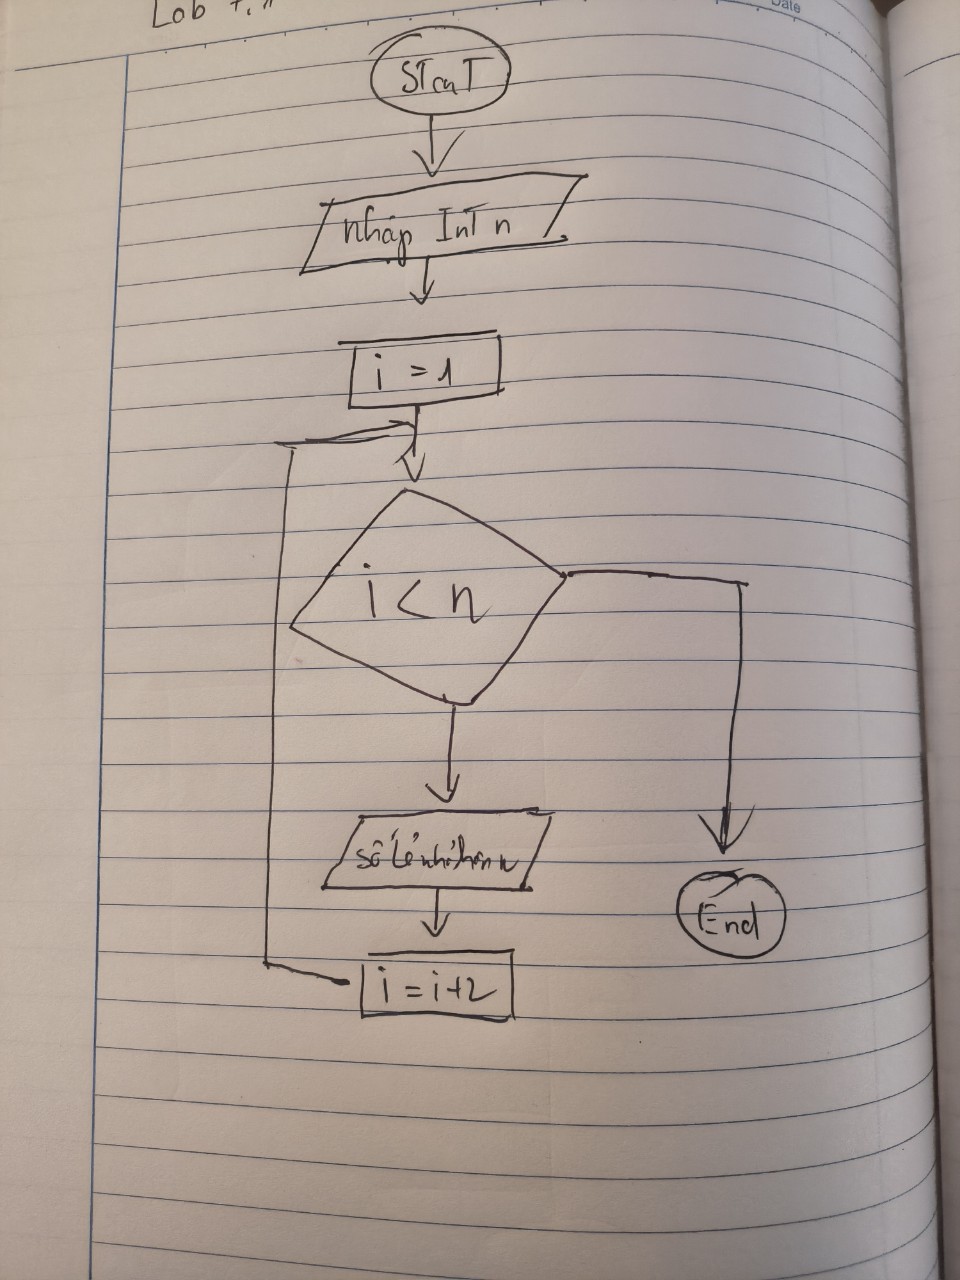 Lab
Date
START
nhập Int n
i = 1
i < n
số lẻ nhỏ hơn n
End
i = i+2